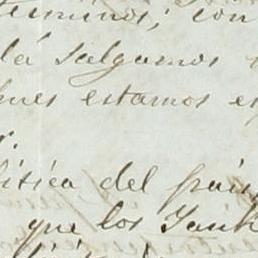 terminos; con
la salgamos
pues estamos es
r.
litica del pais
que los Yank